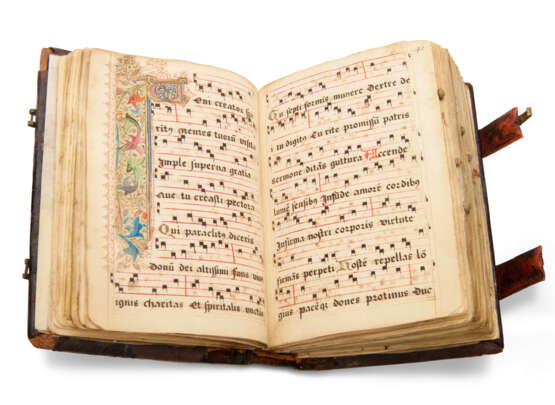 Veni creator spi
ritꝰ mentes tuorũ visita
Imple superna gratia
Que tu creasti pectora
Qui paraclitꝰ diceris
donũ dei altissimi fons vi
ignis charitas Et spiritalis unctio
Tu septi formis munere Dextre de
in digitꝰ Tu rite promissũ patris
sermone ditãs guttura Accende
lumẽ sensibꝰ Infũde amorẽ cordibꝰ
Infirma nostri corporis virtute
firmãs perpeti Hostẽ repellas lõ
gius pacẽq; dones protinus Duc